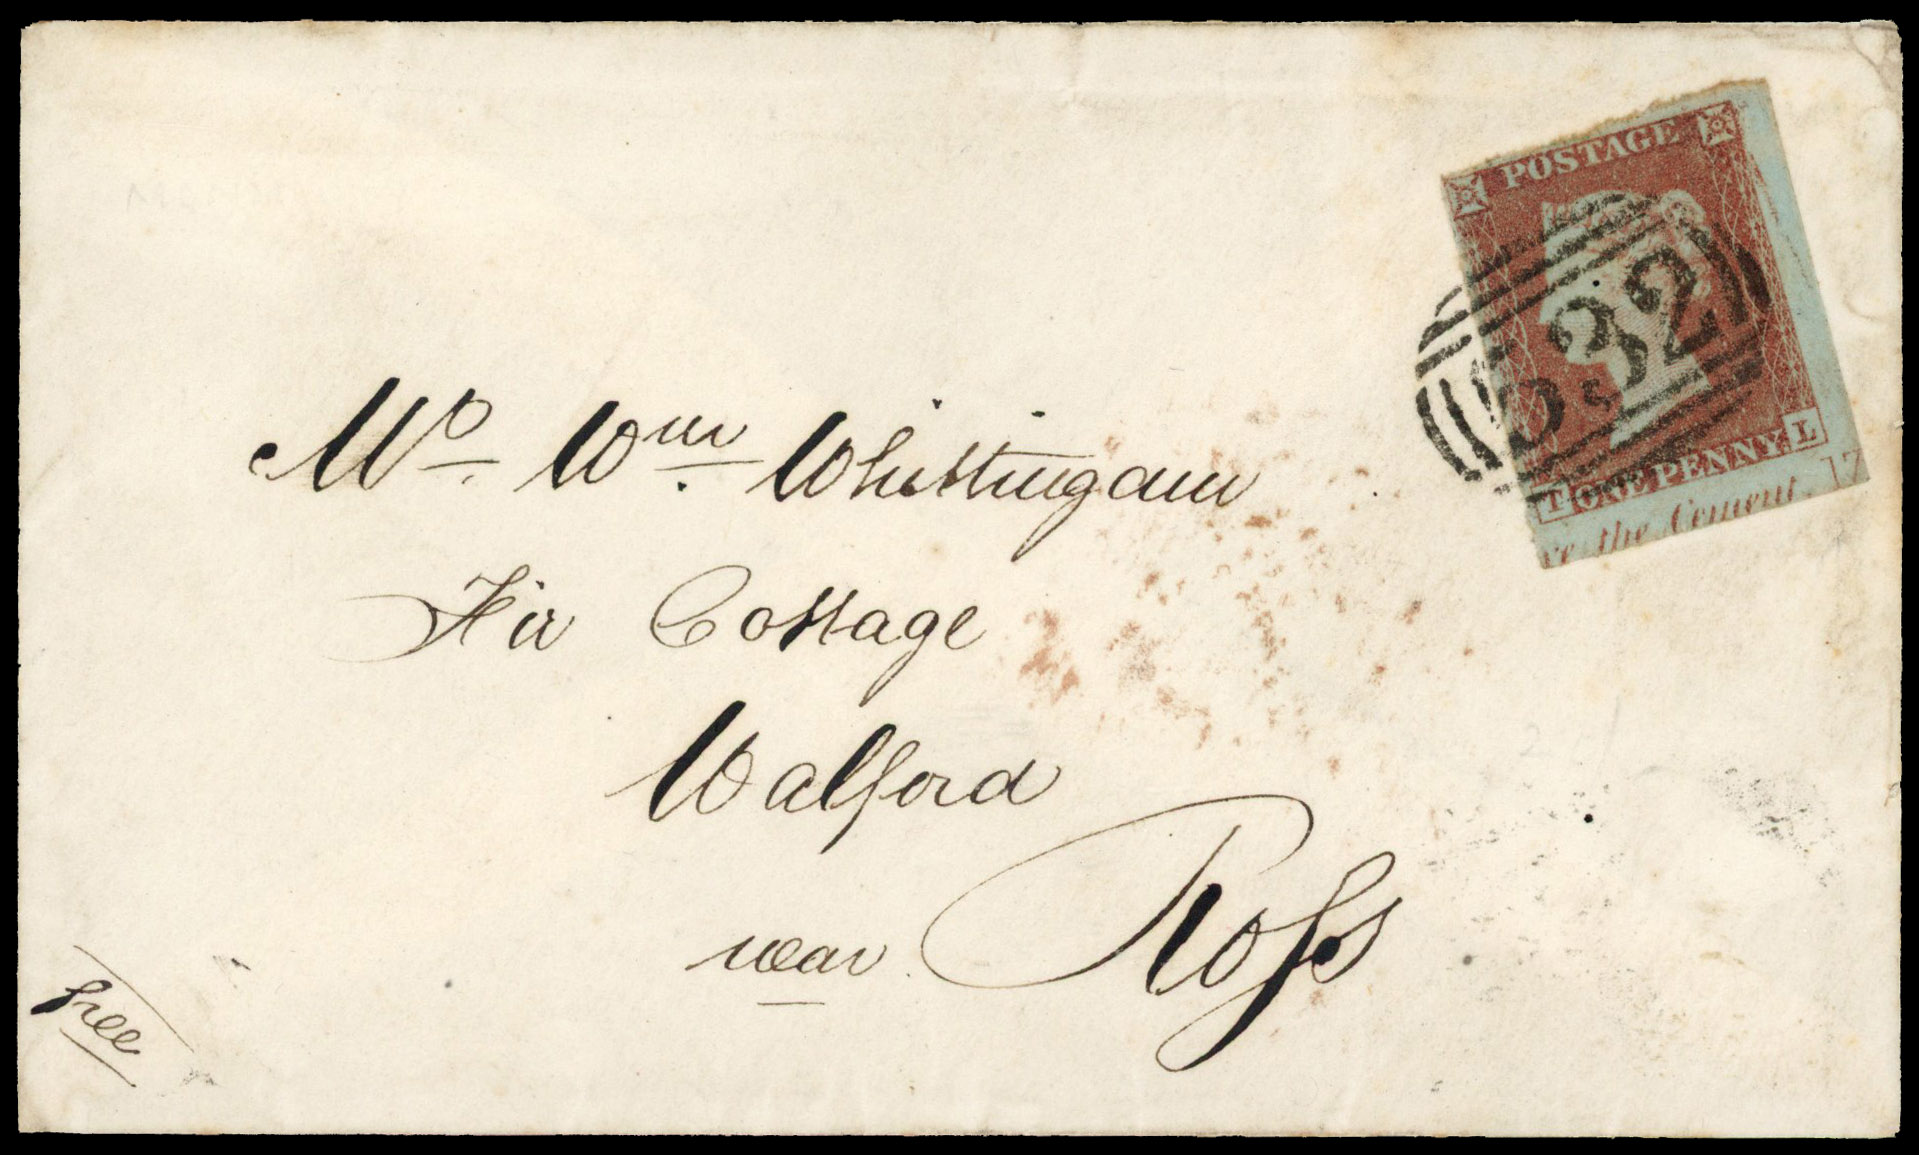 POSTAGE
532
T ONE PENNY. L
ve the Cement. 17
Mr. Wm. Whittingam
Fir Cottage
Walford
near Ross
free